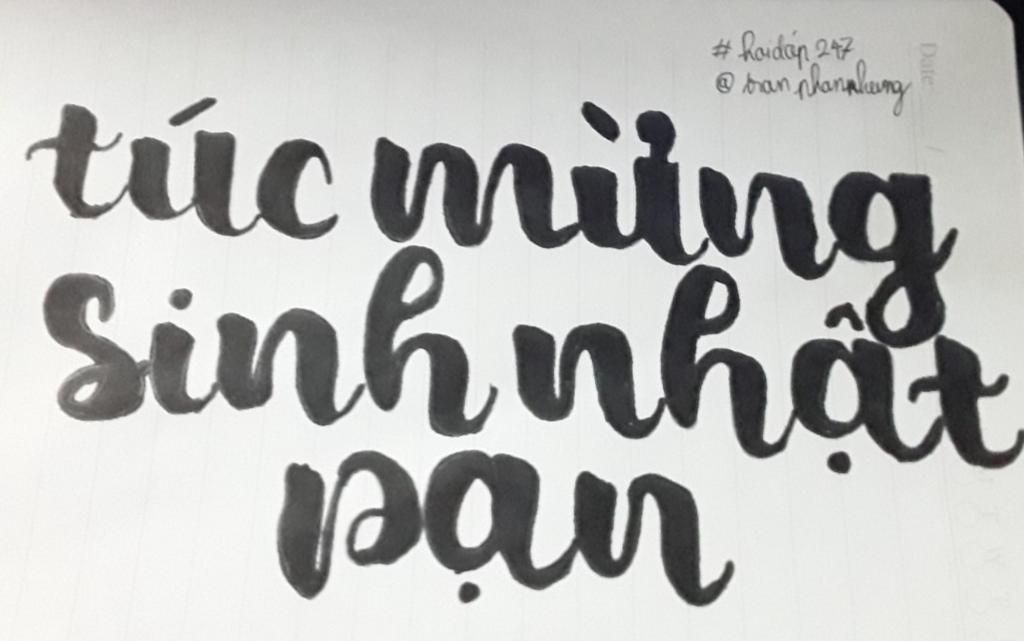 # hoidáp 247
@ tranphannhung
túc mừng
Sinh nhật
bạn
Date: